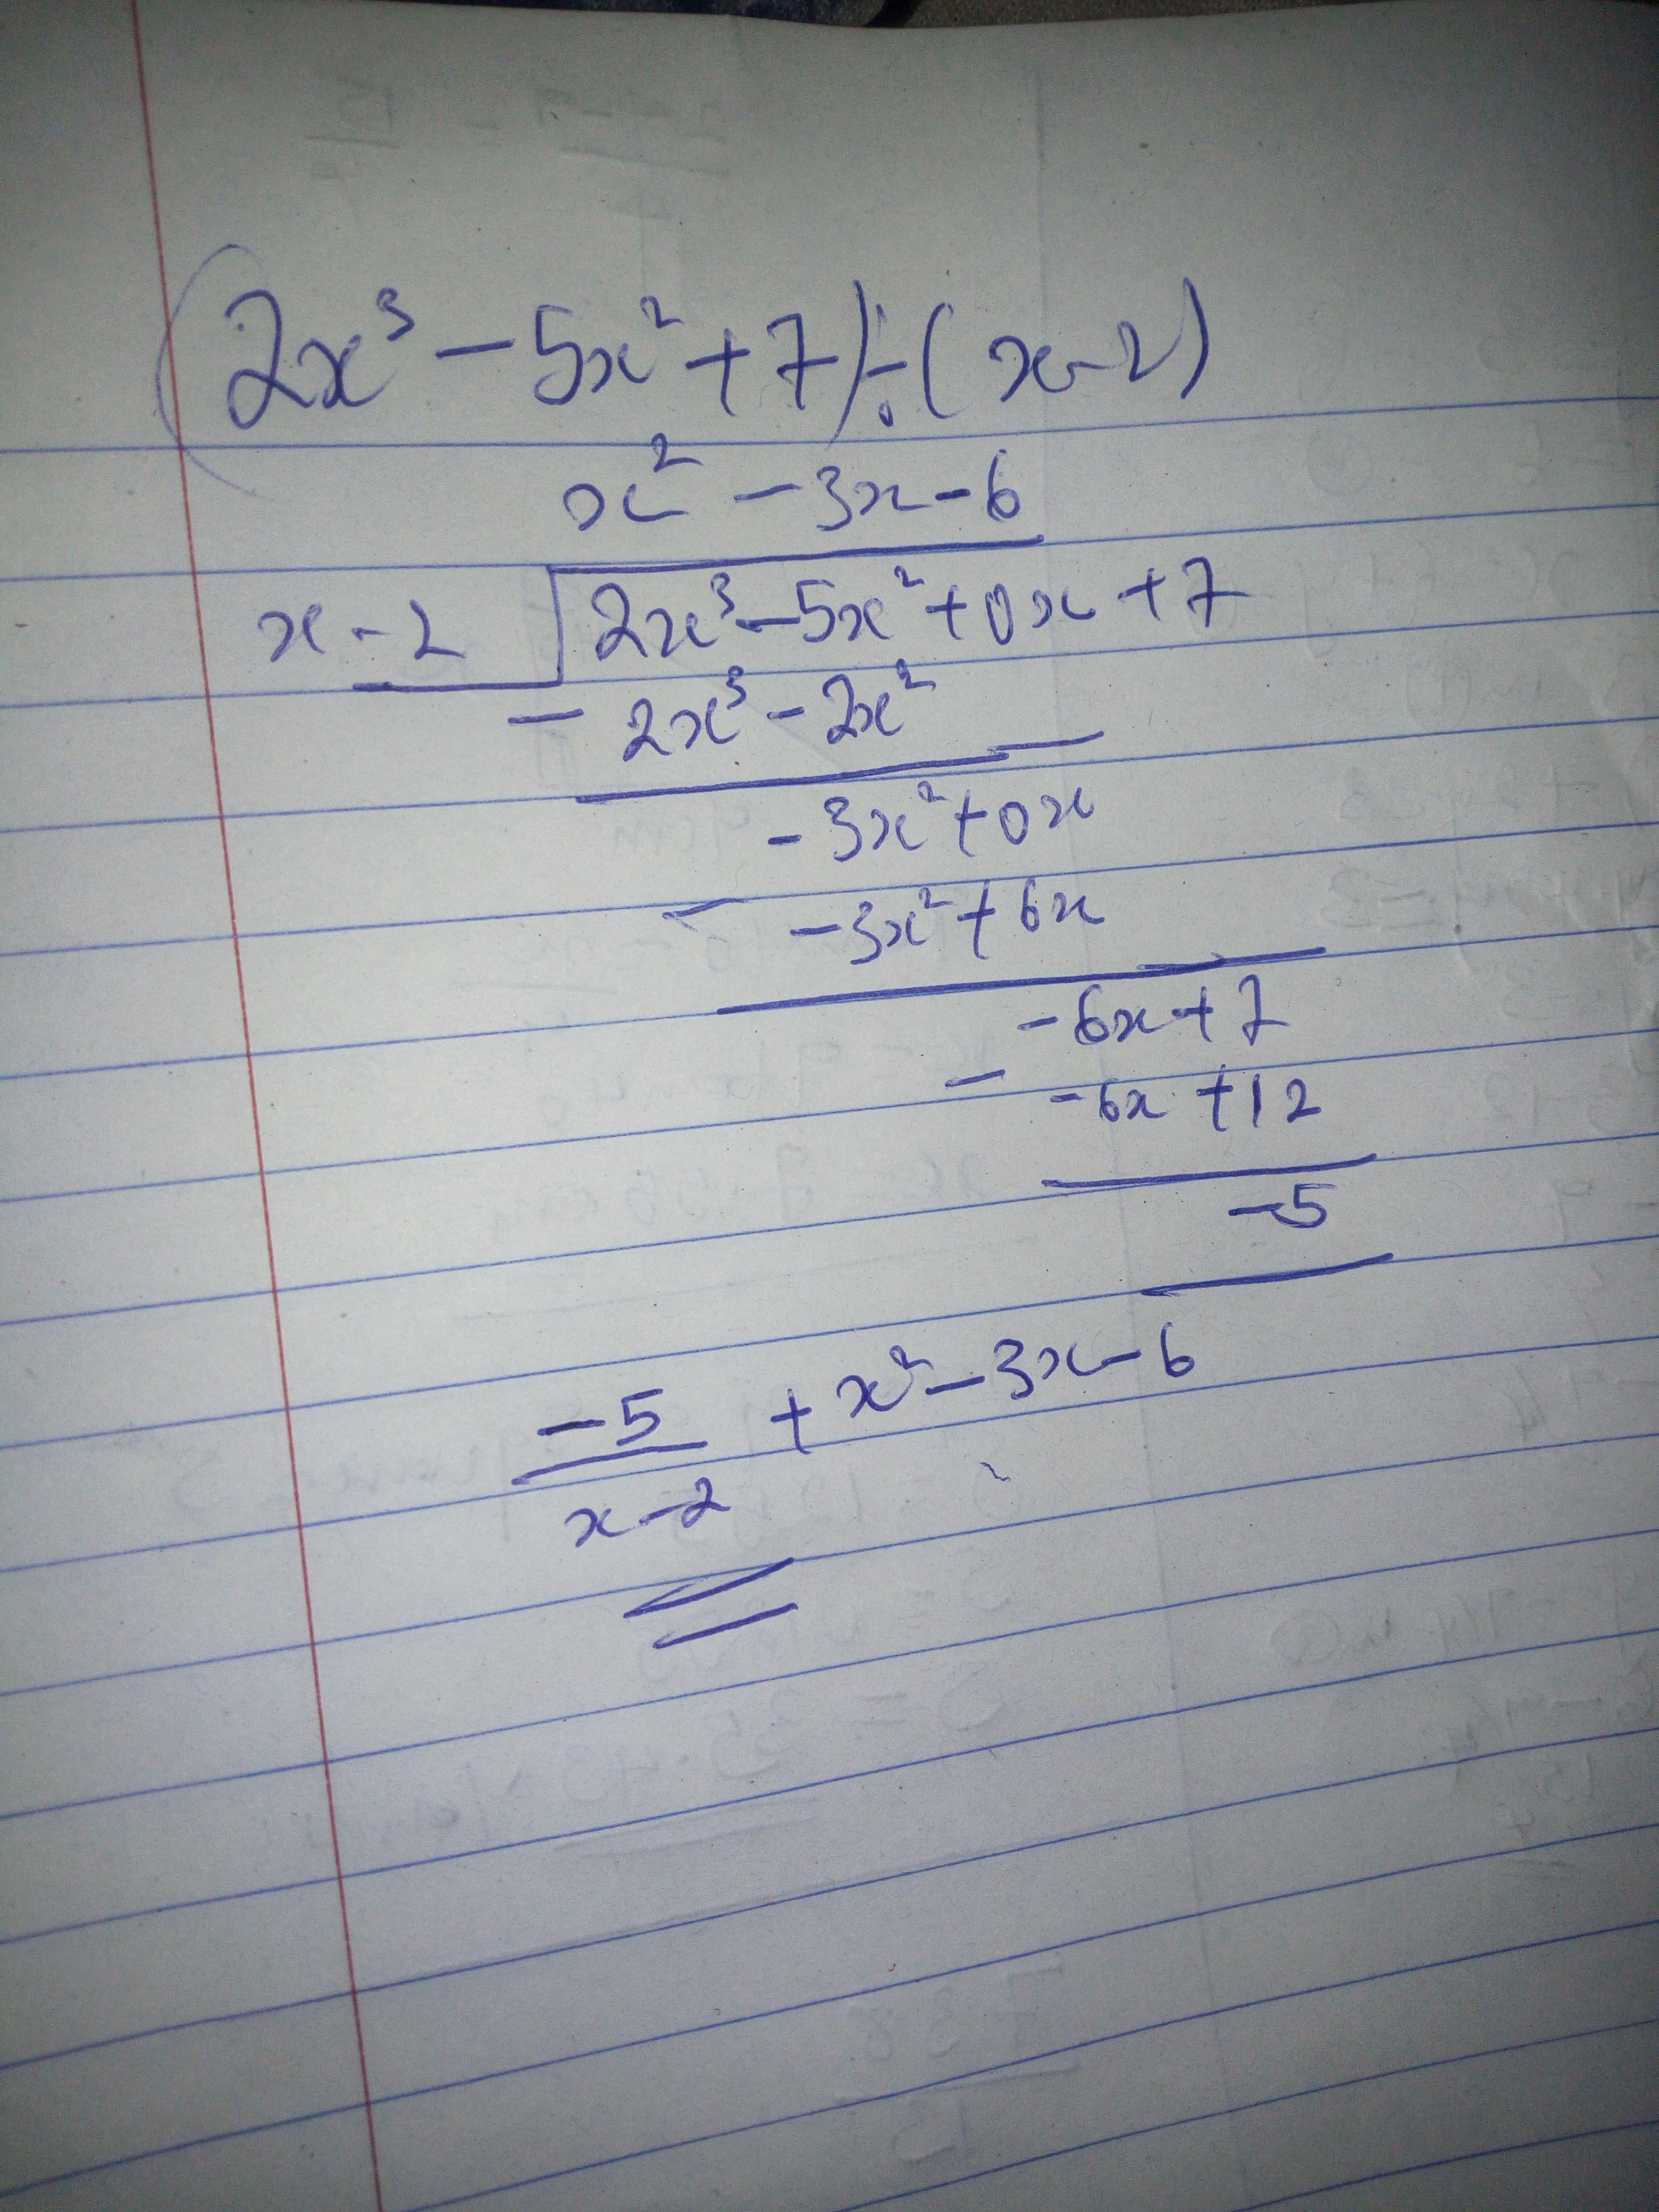 (2x³ - 5x² + 7) ÷ (x - 2)
x² - 3x - 6
x - 2 2x³ - 5x² + 0x + 7
- 2x³ - 2x²
- 3x² + 0x
- -3x² + 6x
-6x + 7
- -6x + 12
-5
-5/x-2 + x² - 3x - 6